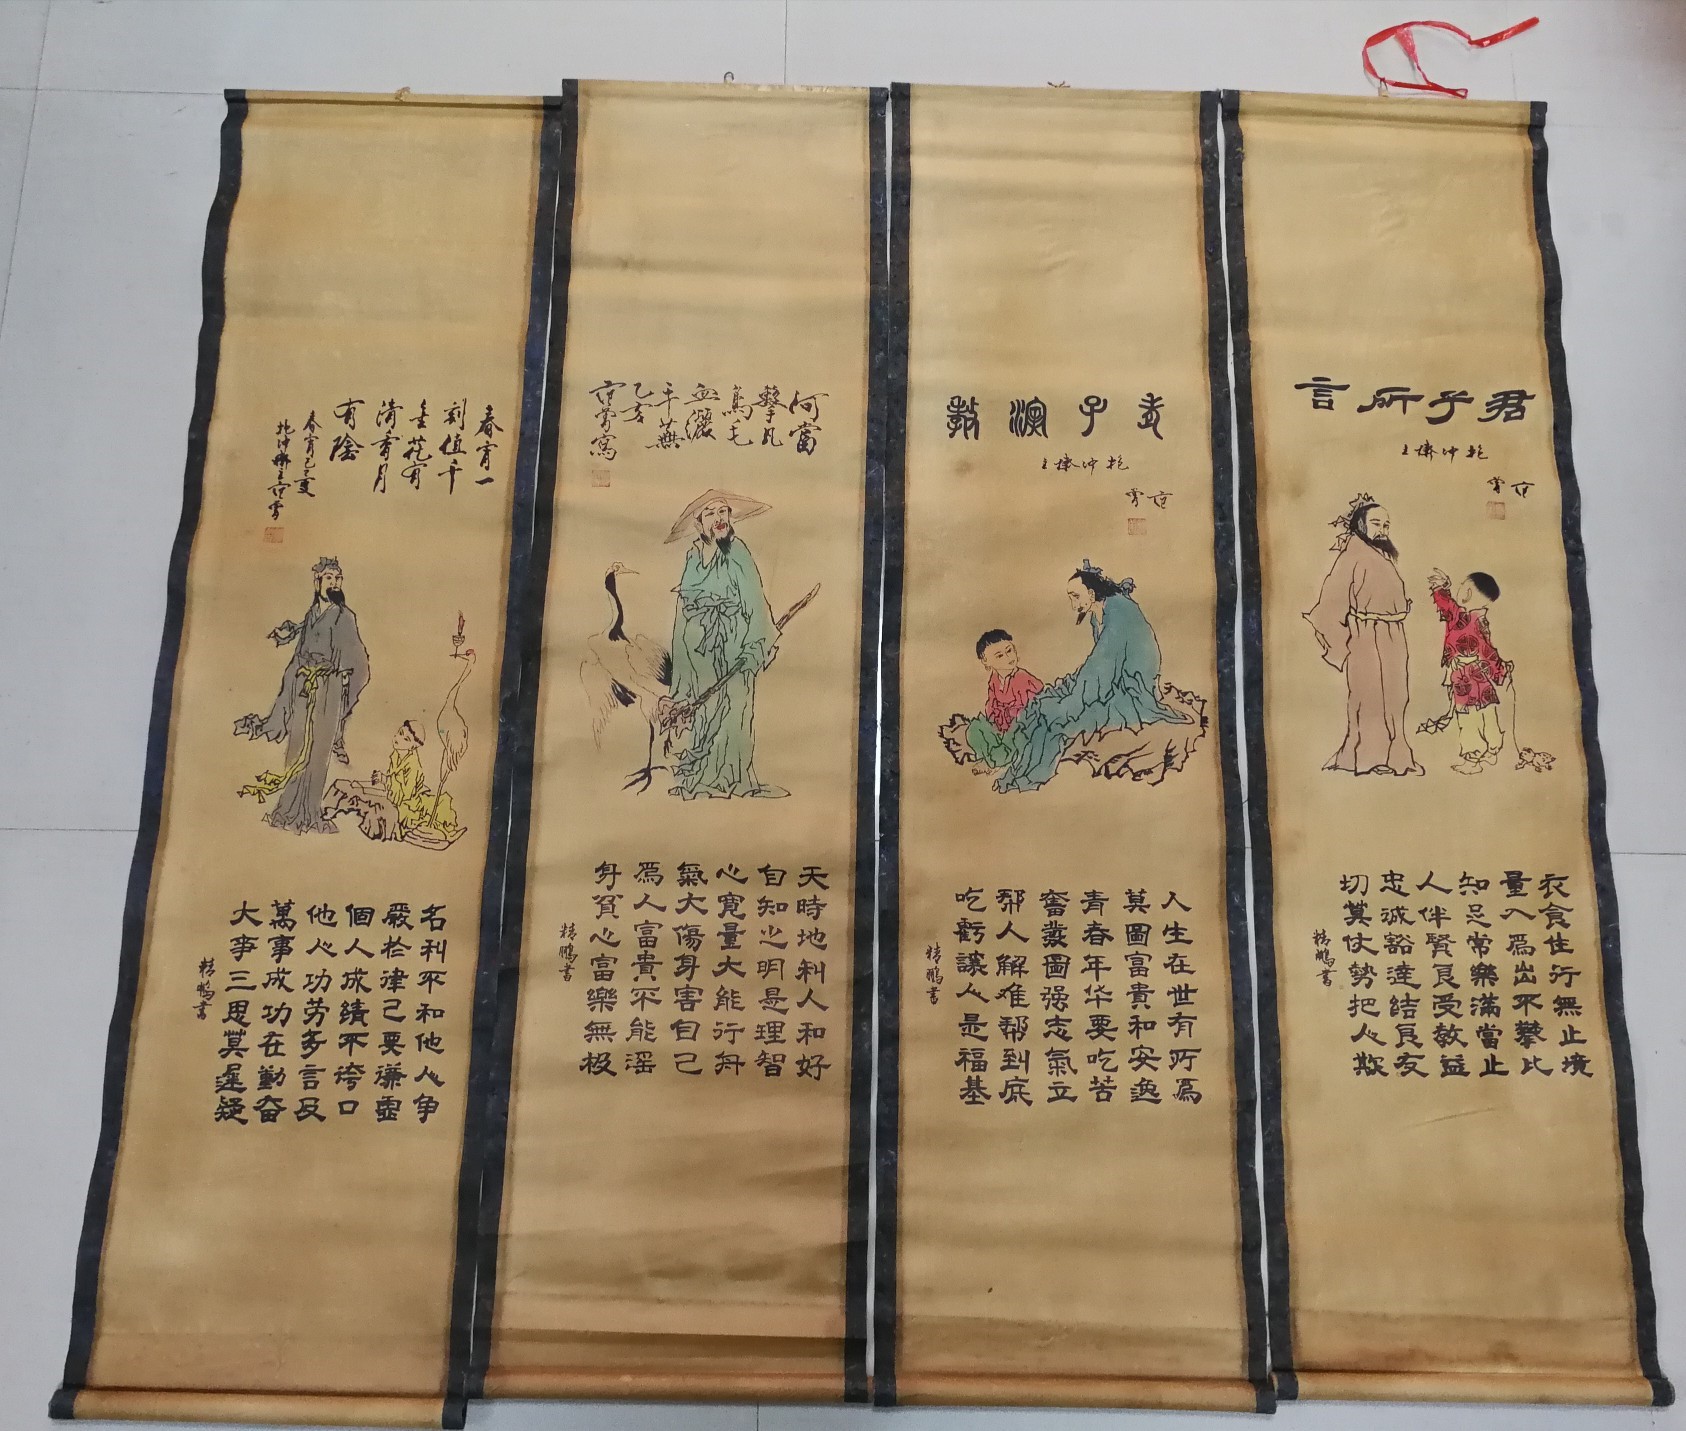 君子所言
抱冲斋主
范曾
衣食住行無止境
量入爲出不攀比
知足常樂滿當止
人伴賢良受教益
忠诚豁達結良友
切莫仗势把人欺
精鵬書
老子演教
抱冲斋主
范曾
人生在世有所爲
莫圖富貴和安逸
青春年华要吃苦
奮發圖强志氣立
帮人解难帮到底
吃虧讓人是福基
精鵬書
何當
擊凡
鳥毛
血灑
平蕪
乙亥
范曾寫
天時地利人和好
自知之明是理智
心寬量大能行舟
氣大傷身害自己
爲人富貴不能滛
身貧心富樂無极
精鵬書
春宵一
刻值千
金花有
清香月
有陰
春宵己亥
抱冲斋主范曾
名利不和他人争
嚴於律己要谦虚
個人成績不夸口
他人功劳多言及
萬事成功在勤奋
大事三思莫遲疑
精鵬書